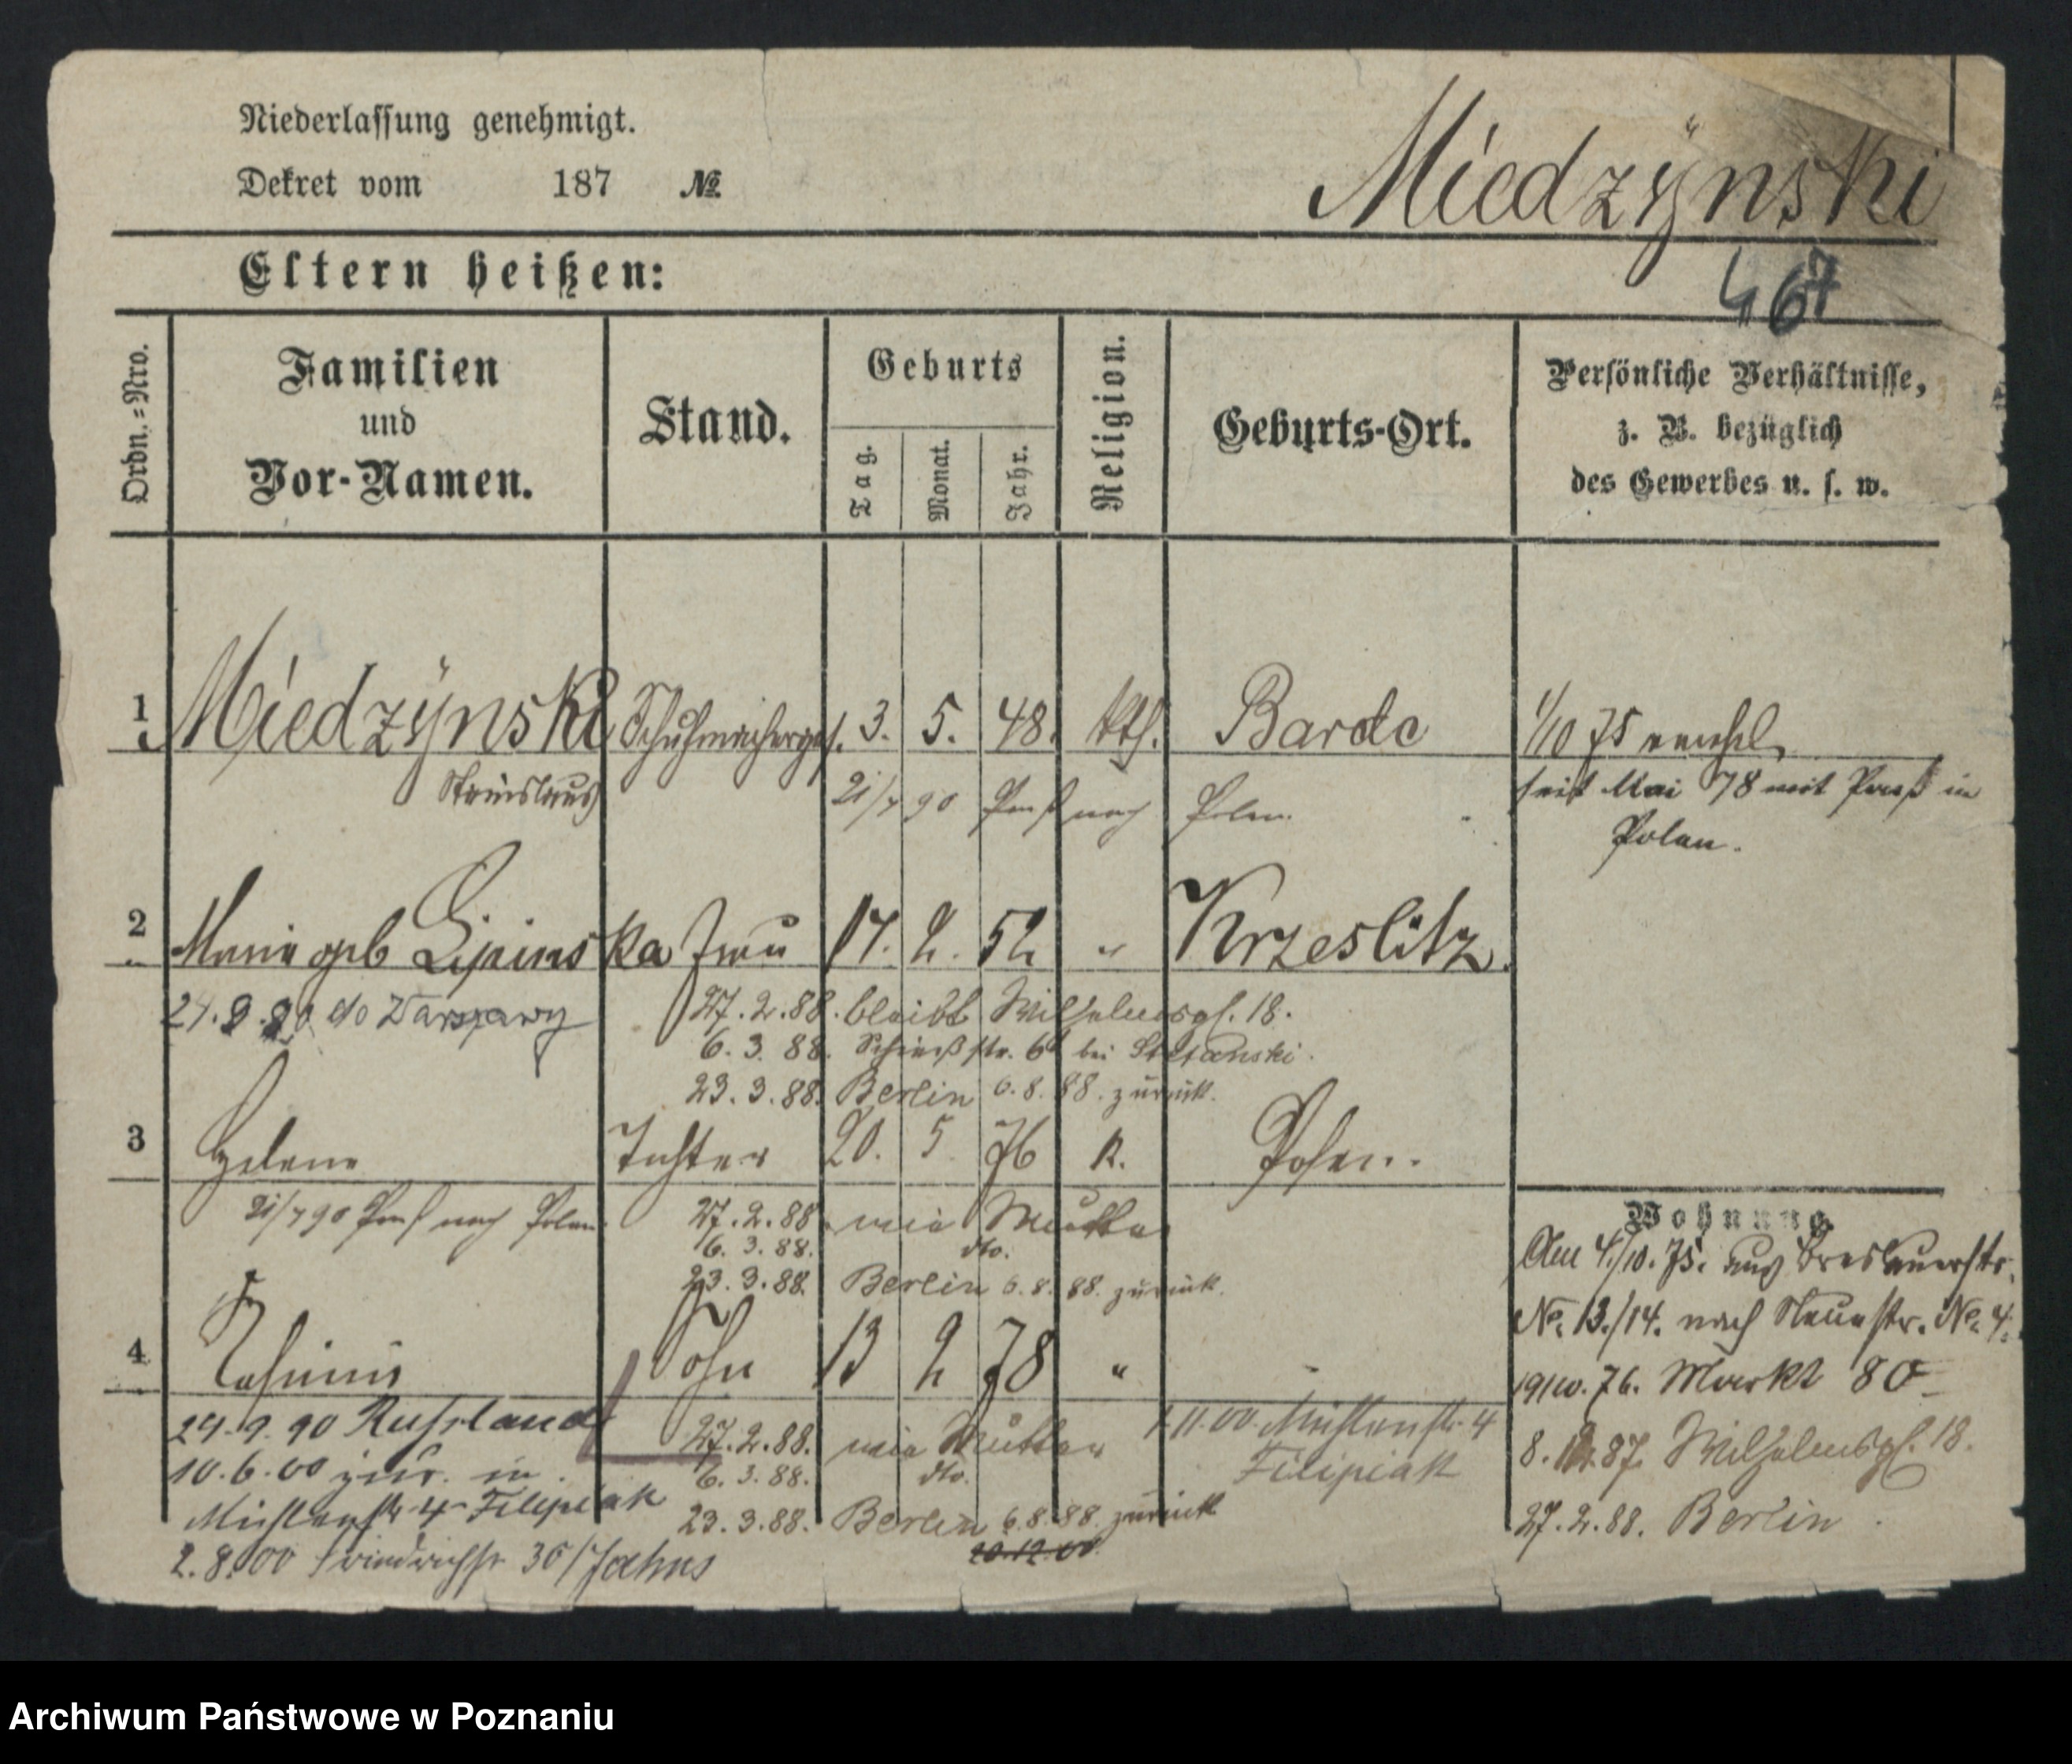 Niederlassung genehmigt.
Miedzÿnski
Dekret vom 187 №
467
Eltern heißen:
Ordn.=Nro.
Familien
und
Vor-Namen.
Stand.
Geburts
Tag.
Monat.
Jahr.
Religion.
Geburts-Ort.
Persönliche Verhältnisse,
z. B. bezüglich
des Gewerbes u. s. w.
1 Miedzÿnski Schuhmacherges. 3. 5. 48. kth. Bardo
Stanislaus
21/7 90 Paß nach Polen.
1/10 75
seit Mai 78 mit Paß in
Polen.
2 Maria geb Lipinska Frau 17. 2. 52 " Krzeslitz.
do Warszawy
27.2.88. bleibt Wilhelmspl. 18.
6.3.88. Schieß str. 6 bei Stefanski.
23.3.88. Berlin 6.8.88. zurück.
3 Helene Tochter 20. 5 76 k. Posen.
21/7 90 Paß nach Polen.
27.2.88. wie Mutter
6.3.88. dto.
23.3.88. Berlin 6.8.88. zurück.
4 Casimir Sohn 13 2 78 "
29.9.90 Russland
10.6.00 zur. in
Mühlenstr 4 Filipiak
2.8.00 Friedrichstr 30/Jahns
27.2.88. wie Mutter
6.3.88. dto.
23.3.88. Berlin 6.8.88. zurück
20.12.00.
1.11.00. Mühlenstr. 4
Filipiak
Wohnung.
Am 4./10. 75. aus Breslauerstr.
No. 13./14. nach Neuestr. No. 4.
76. Markt 80
8. 87. Wilhelmspl. 18.
27.2.88. Berlin.
Archiwum Państwowe w Poznaniu